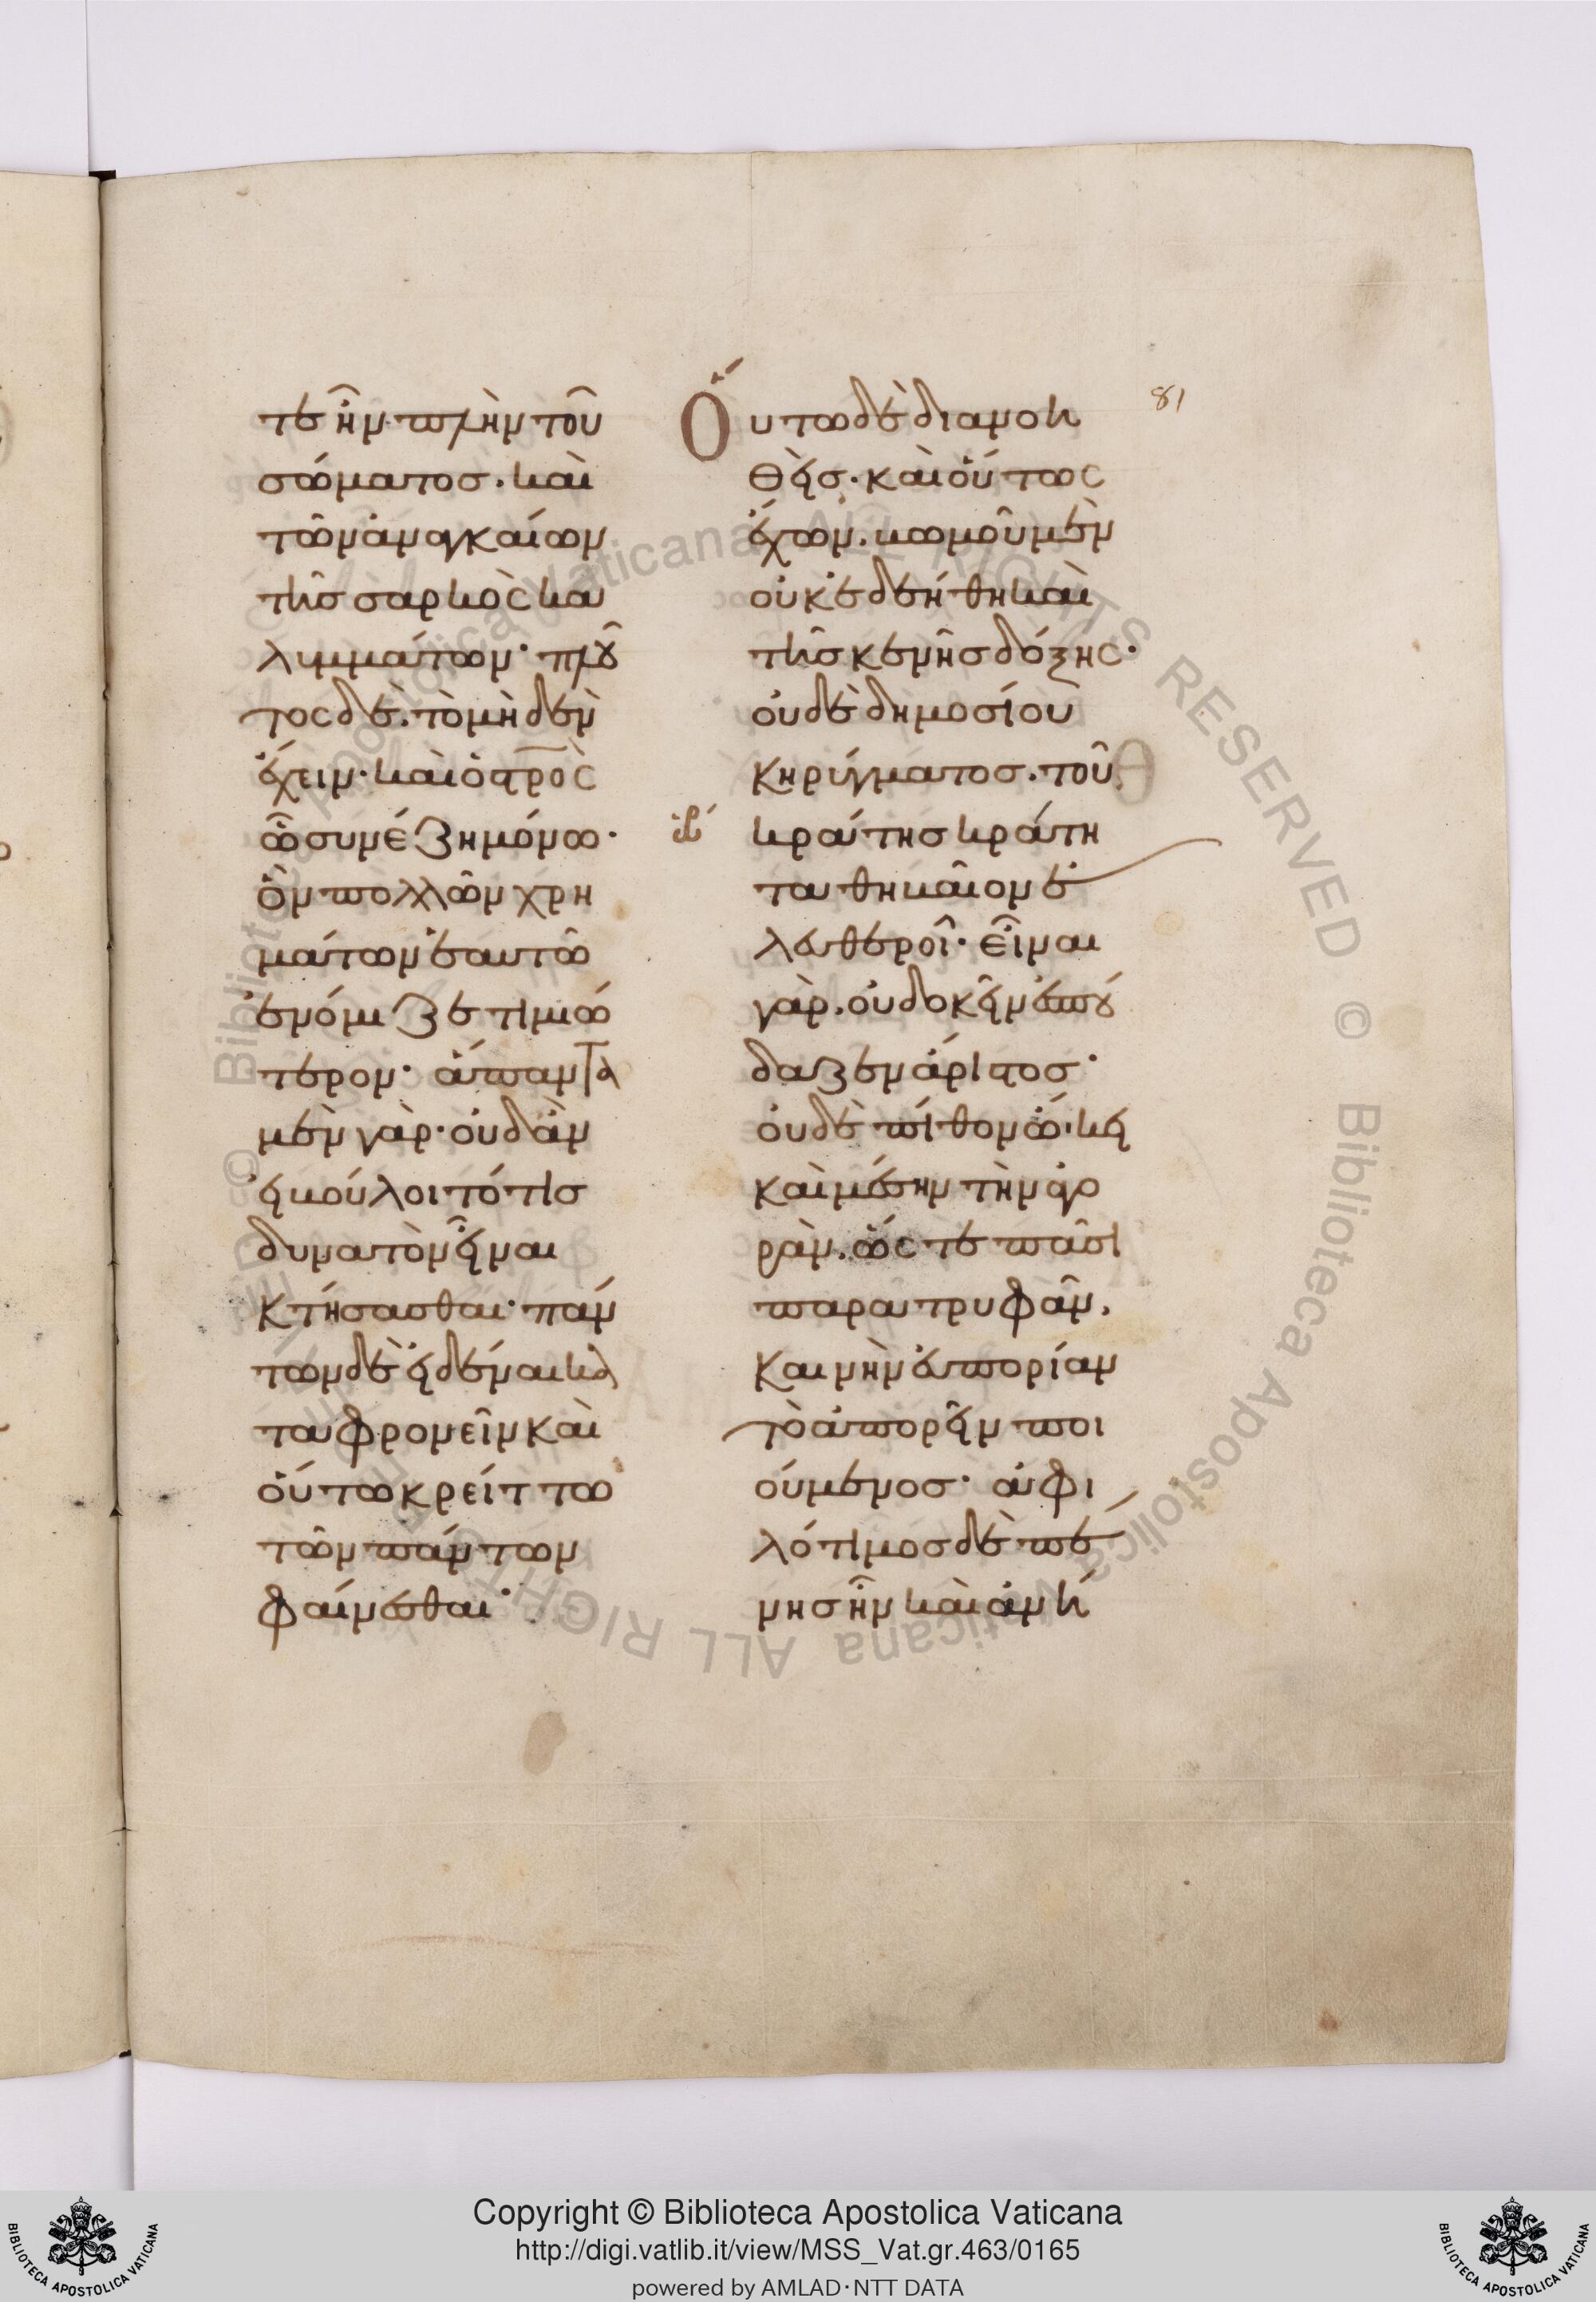 τε ἦν πλὴν τοῦ
σώματος. καὶ
τῶν ἀναγκαίων
τῆς σαρκὸς κα
λυμμάτων· πλοῦ
τος δὲ. τὸ μηδὲν
ἔχειν· καὶ ὁ σ̅ρ̅ο̅ς
ᾧ συνέζη μόνω·
ὃν πολλῶν χρη
μάτων ἑαυτῶ
ἐνόμιζε τιμιώ
τερον· ἅπαντα
μὲν γὰρ· οὐδ' ἂν
εἰ βούλοιτό τις
δυνατὸν εἶναι
κτήσασθαι· πάν
των δὲ εἰδέναι κα
ταφρονεῖν καὶ
οὕτω κρείττω
τῶν πάντων
φαίνεσθαι·
Οὕτω δὲ διανοη
θεὶς· καὶ οὕτως
ἔχων. βωμοῦ μὲν
οὐκ ἐδεήθη καὶ
τῆς κενῆς δόξης·
οὐδὲ δημοσίου
κηρύγματος. τοῦ
κράτης κράτη
τα θηβαῖον ἐ
λευθεροῖ· εἶναι
γὰρ. οὐ δοκεῖν ἐσπού
δαζεν ἄριστος·
οὐδὲ πίθον ᾤκει
καὶ μέσην τὴν ἀγο
ρὰν. ὥστε πᾶσι
παρατρυφᾶν.
καινὴν εὐπορίαν
τὸ ἀπορεῖν ποι
ούμενος· ἀφι
λότιμος δὲ πέ
νης ἦν καὶ ἀνή
81
Copyright © Biblioteca Apostolica Vaticana
http://digi.vatlib.it/view/MSS_Vat.gr.463/0165
powered by AMLAD·NTT DATA
BIBLIOTECA APOSTOLICA VATICANA
BIBLIOTECA APOSTOLICA VATICANA